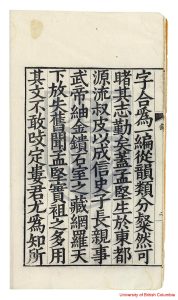 字合爲一編從韻類分粲然可
睹其志勤矣蓋孟堅生於東都
源流叔皮乃成信史子長親事
武帝紬金鐀石室之藏網羅天
下放失舊聞孟堅實祖之多用
其文不敢改定婁君尤爲知所
University of British Columbia